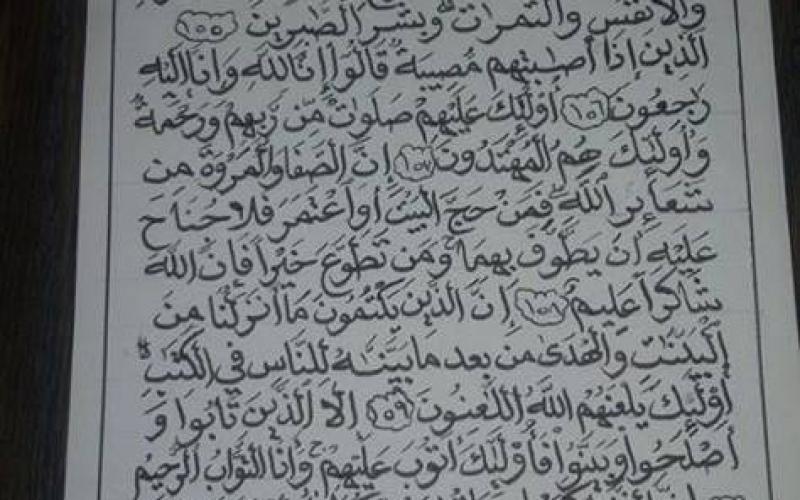 والأنفس والثمرات وبشر الصابرين ١٥٥
الذين إذا أصبتهم مصيبة قالوا إنا لله وإنا إليه
رجعون ١٥٦ أولئك عليهم صلوت من ربهم ورحمة
وأولئك هم المهتدون ١٥٧ إن الصفا والمروة من
شعائر الله فمن حج البيت أو اعتمر فلا جناح
عليه أن يطوف بهما ومن تطوع خيرا فإن الله
شاكر عليم ١٥٨ إن الذين يكتمون ما أنزلنا من
البينت والهدى من بعد ما بينه للناس في الكتب
أولئك يلعنهم الله اللعنون ١٥٩ إلا الذين تابوا و
أصلحوا وبينوا فأولئك أتوب عليهم وأنا التواب الرحيم